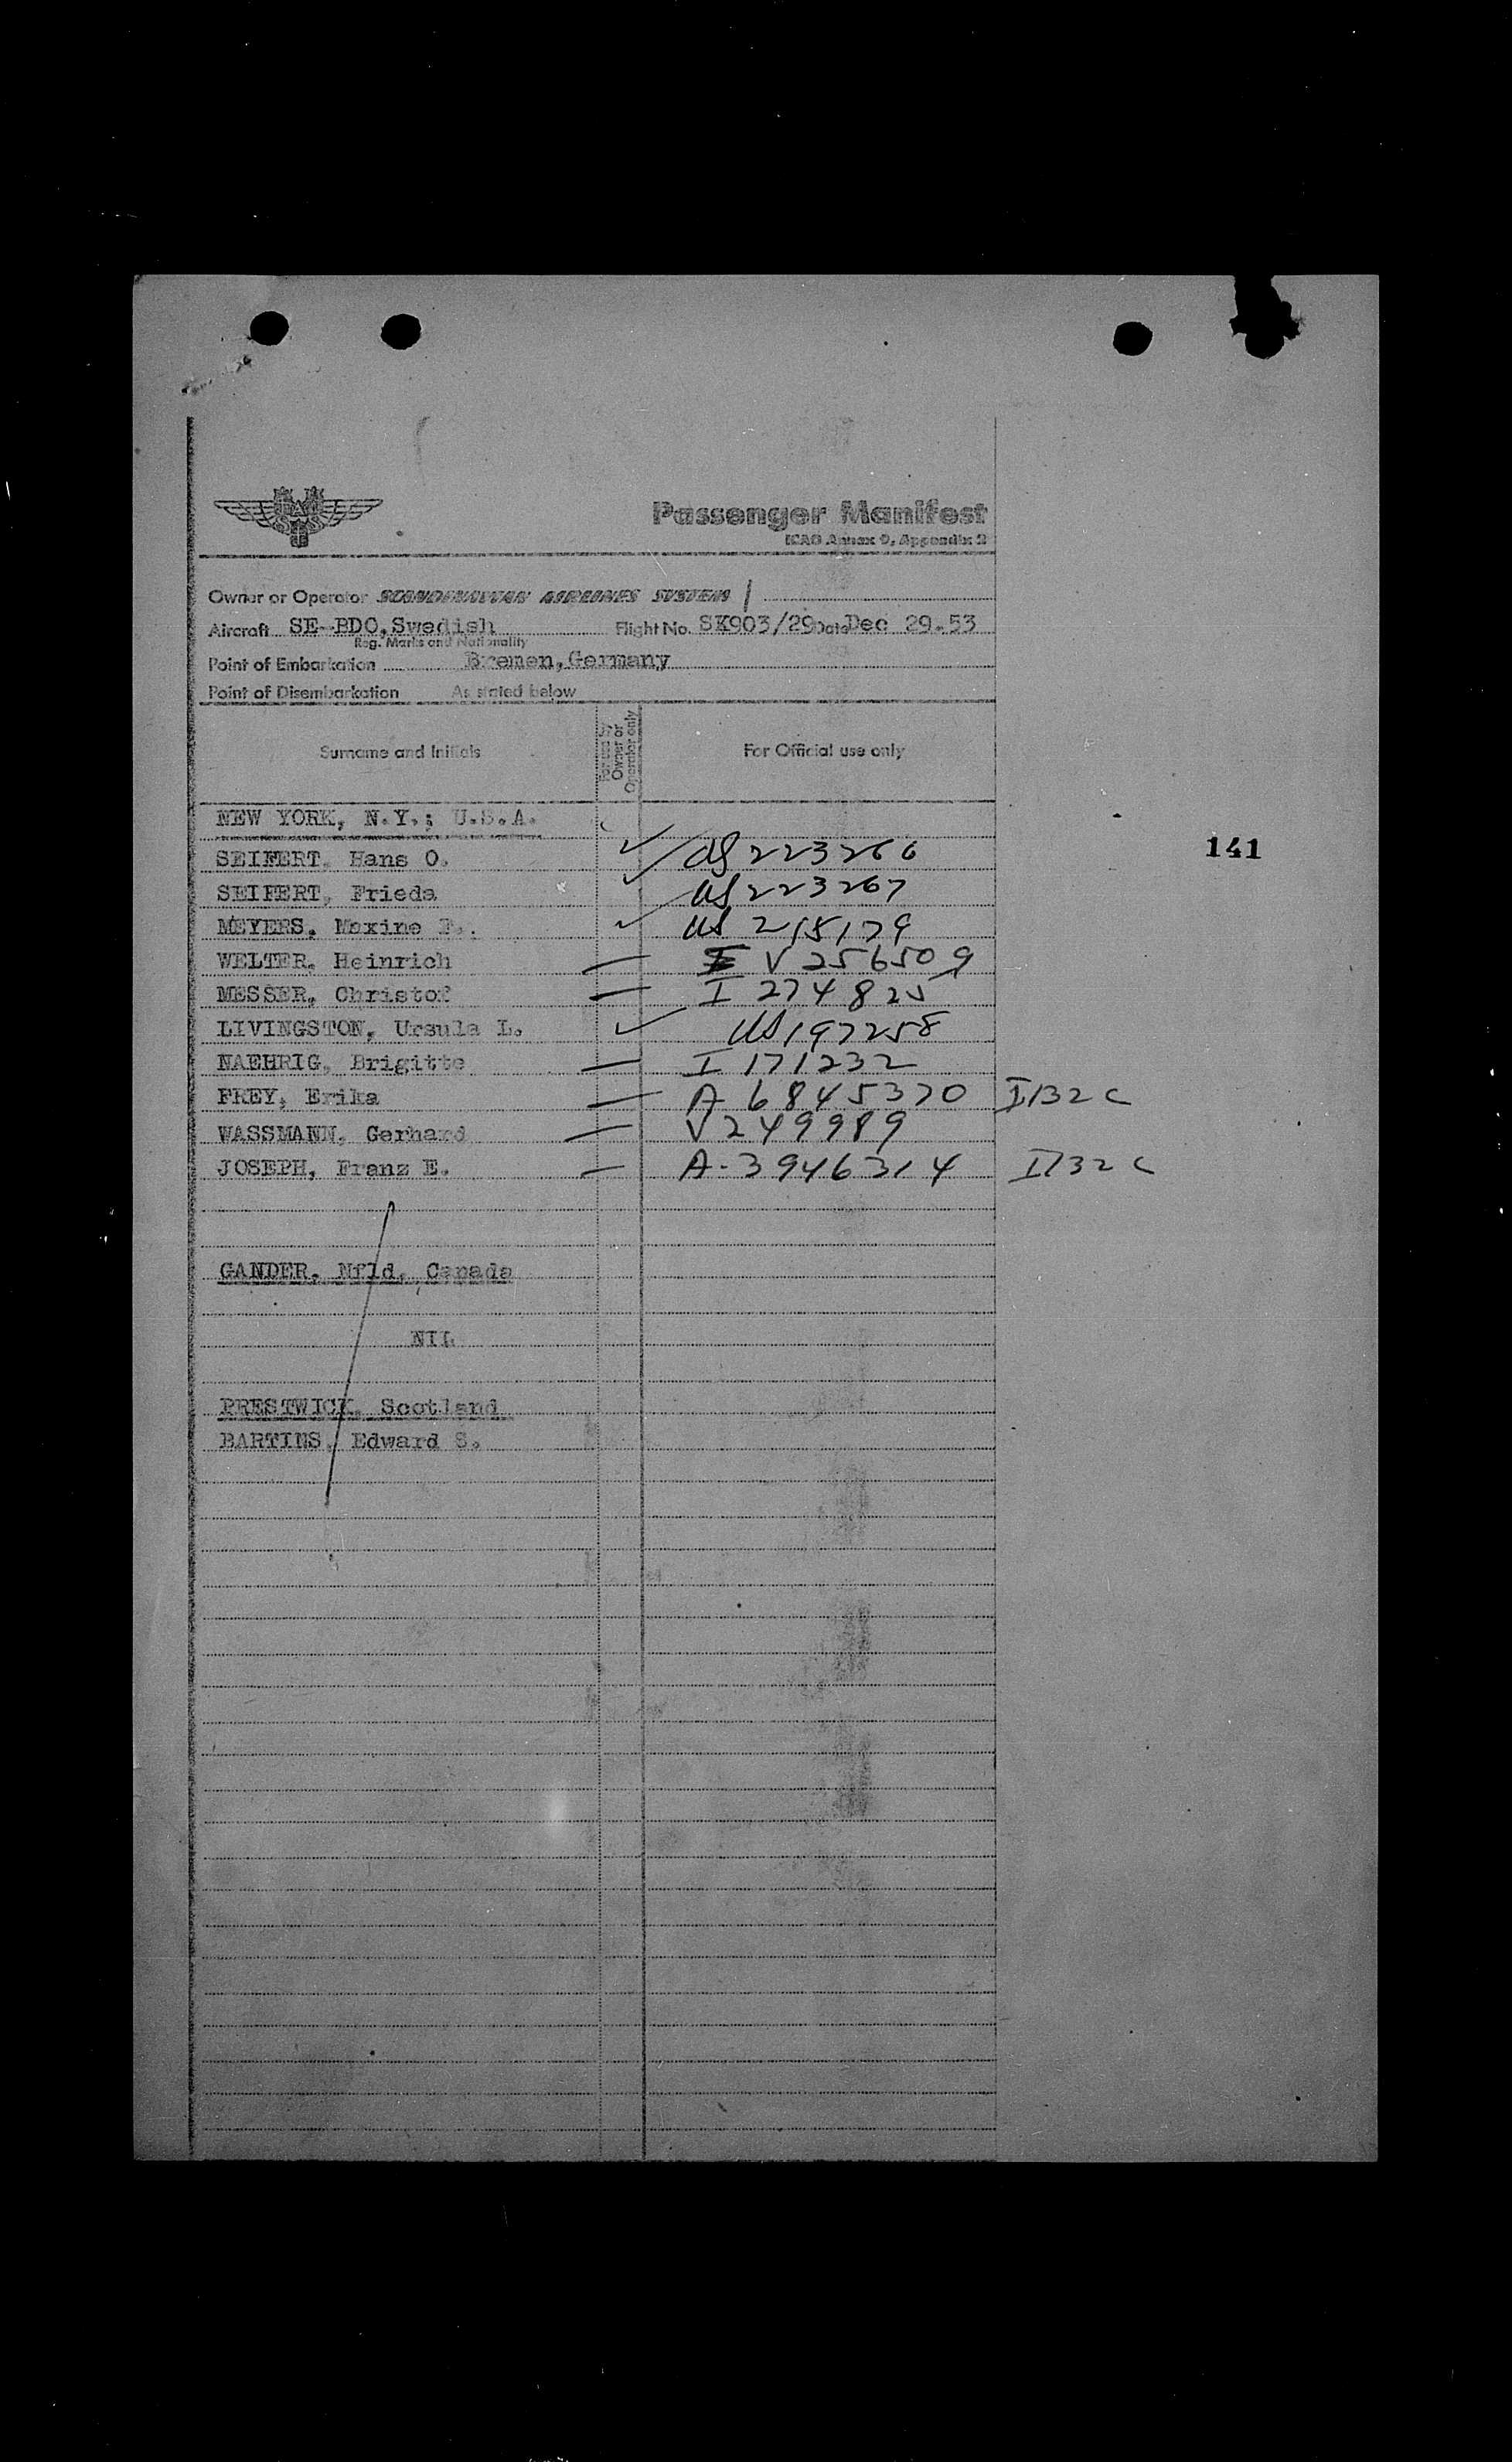 Passenger Manifest
ICAO Annex 9, Appendix 2
Owner or Operator SCANDINAVIAN AIRLINES SYSTEM
Aircraft SE-BDO, Swedish Flight No. SK903/29 Date Dec 29.53
Reg. Marks and Nationality
Point of Embarkation Bremen, Germany
Point of Disembarkation As stated below
Surname and Initials For use by Owner or Operator only For Official use only
NEW YORK, N.Y.; U.S.A.
SEIFERT, Hans O. ✓ US 223266
141
SEIFERT, Frieda ✓ US 223267
MEYERS, Maxine ✓ US 215179
WELTER, Heinrich — V 256509
MESSER, Christof — I 274825
LIVINGSTON, Ursula L. ✓ US 197258
NAEHRIG, Brigitte — I 171232
FREY, Erika — A 6845370 I132C
WASSMANN, Gerhard — V 249989
JOSEPH, Franz E. — A-3946314 I132C
GANDER, Nfld, Canada
NIL
PRESTWICK, Scotland
BARTIES, Edward S.